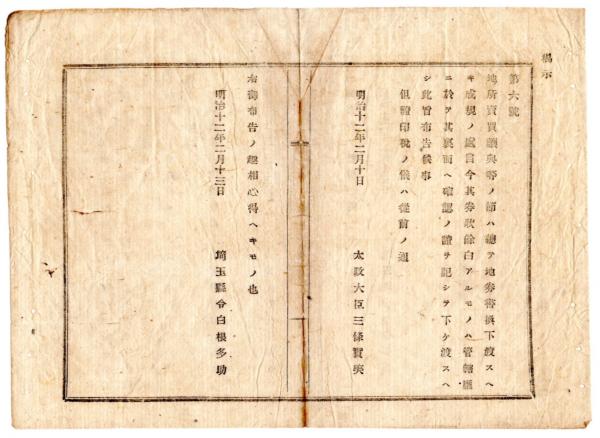 掲示
第六號
地所賣買讓與等ノ節ハ總テ地券書換下渡スヘ
キ成規ノ處自今其券狀餘白アルモノハ管轄廳
ニ於テ其裏面ヘ確認ノ證ヲ記シテ下ケ渡スヘ
シ此旨布告候事
但證印稅ノ儀ハ從前ノ通
明治十二年二月十日
太政大臣三條實美
右御布告ノ趣相心得ヘキモノ也
明治十二年二月十三日
埼玉縣令白根多助